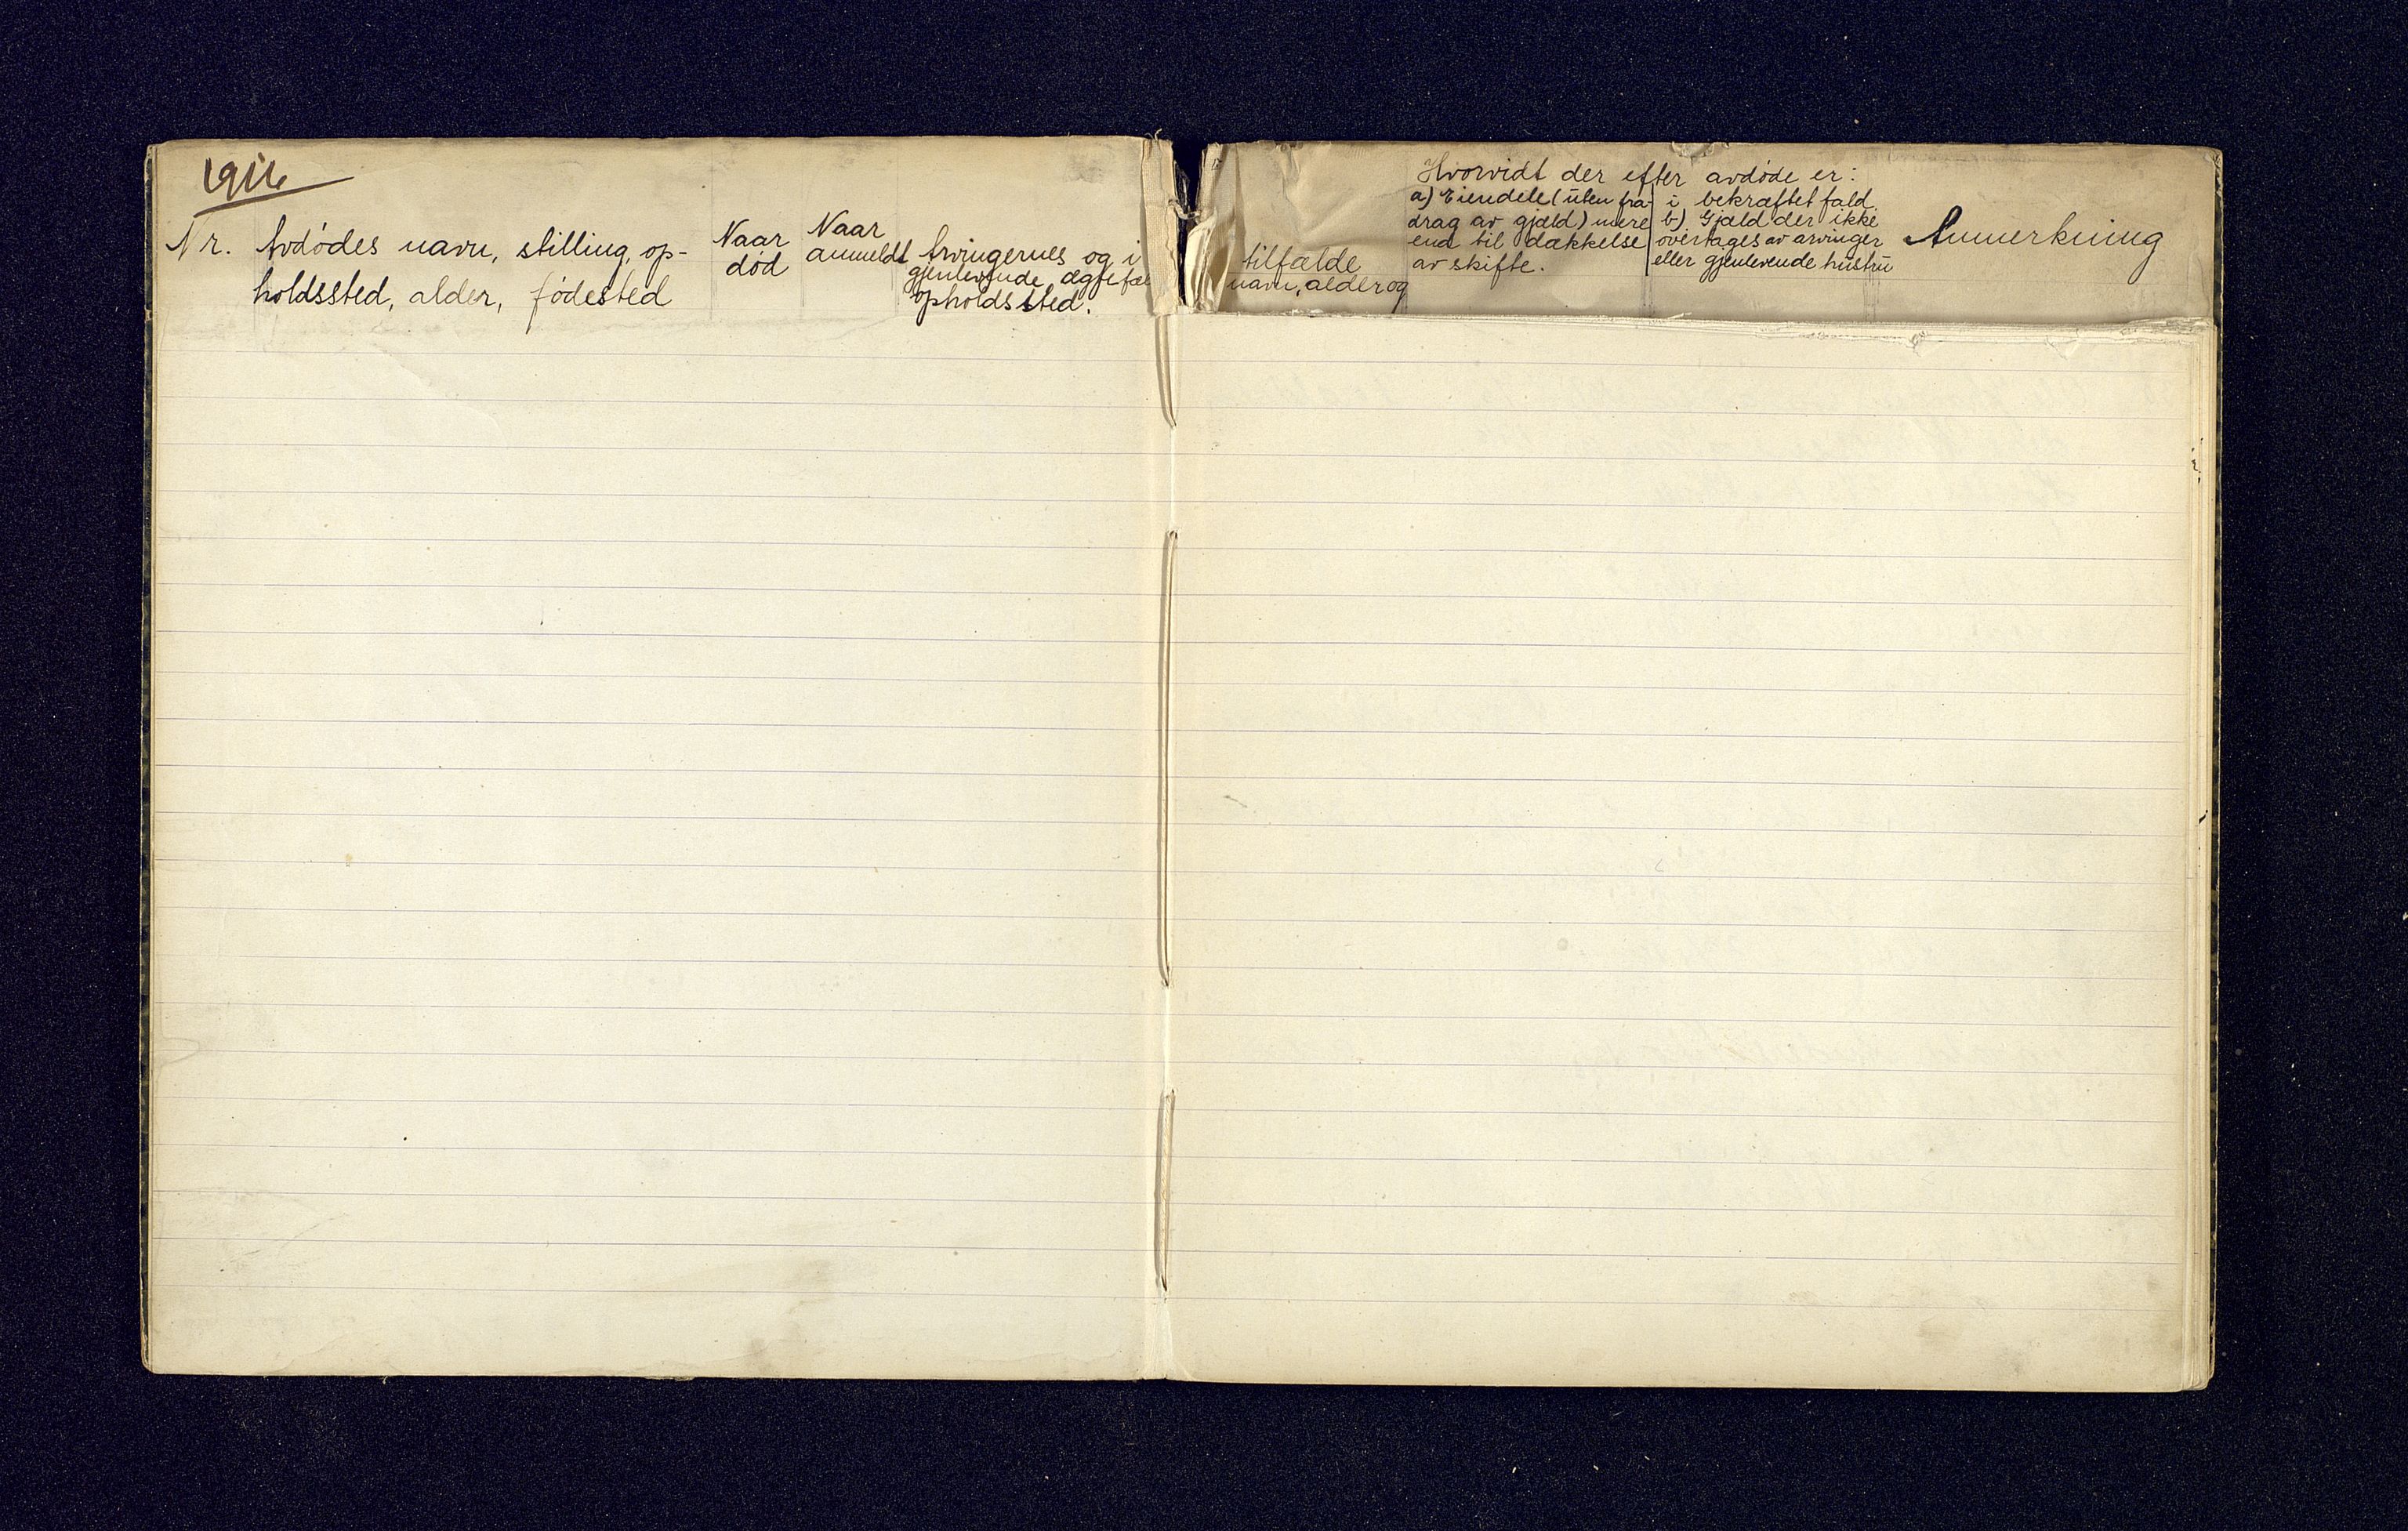 1916
Nr.
Avdødes navn, stilling, op-
holdssted, alder, fødested
Naar
død
Naar
anmeldt
Arvingernes og i
gjenlevende ægtefæl
opholdssted.
tilfælde
navn, alder og
Hvorvidt der efter avdøde er:
a) Eiendele (uten fra-
drag av gjæld) mere
end til dækkelse
av skifte.
i bekræftet fald
b) Gjæld der ikke
overtages av arvinger
eller gjenlevende hustru
Anmerkning